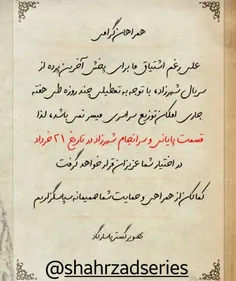 همراهان گرامی
علی رغم اشتیاق ما برای پخش آخرین پرده از
سریال شهرزاد، با توجه به تعطیلی چند روزه طی هفته
جاری امکان توزیع سراسری میسر نمی باشد، لذا
قسمت پایانی و سرانجام شهرزاد در تاریخ ۲۱ خرداد
در اختیار شما عزیزان قرار خواهد گرفت
کماکان از همراهی و حمایت شما صمیمانه سپاسگزاریم
تصویر گستر پاسارگاد
@shahrzadseries